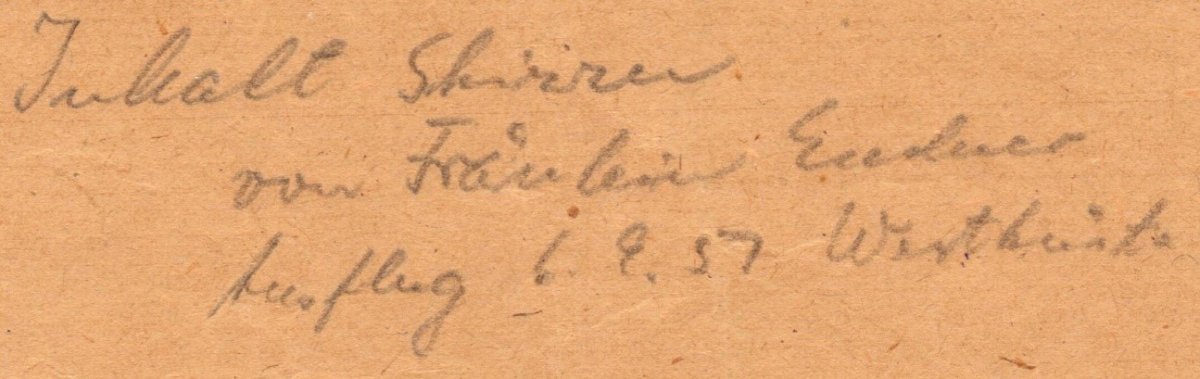 Inhalt Skizzen
von Fräulein Endner
Ausflug 6. 57 Westküste